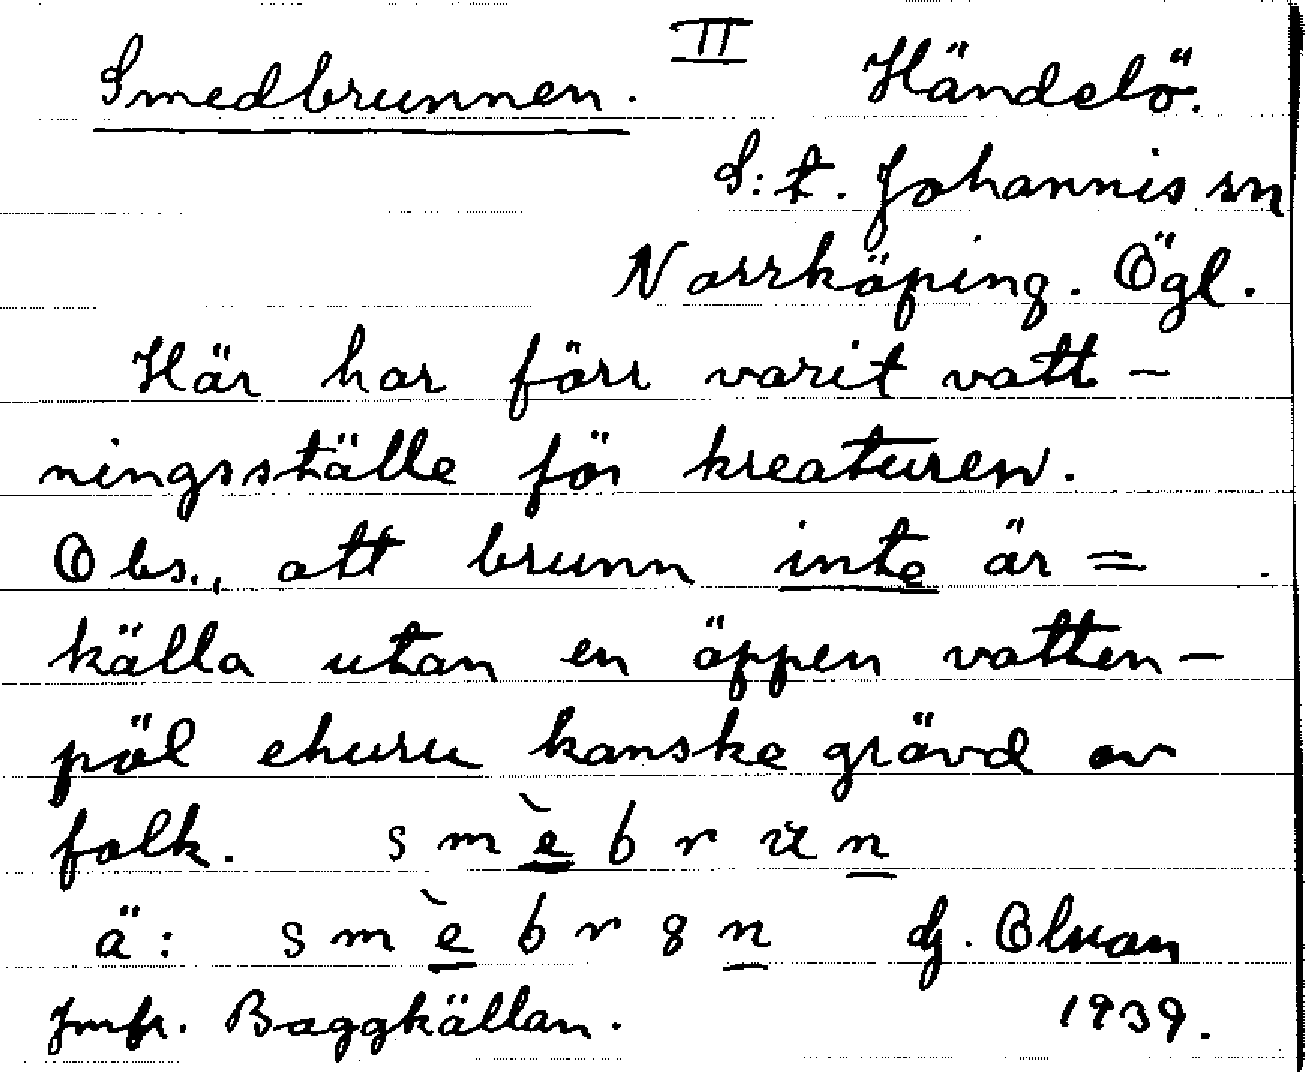 II
Smedbrunnen. Händelö.
S:t. Johannis sn
Norrköping. Ögl.
Här har förr varit vatt-
ningsställe för kreaturen.
Obs., att brunn inte är =
källa utan en öppen vatten-
pöl ehuru kanske grävd av
folk. smèbrun
ä: smèbr8n dj. Olman
Jmfr. Baggkällan. 1939.